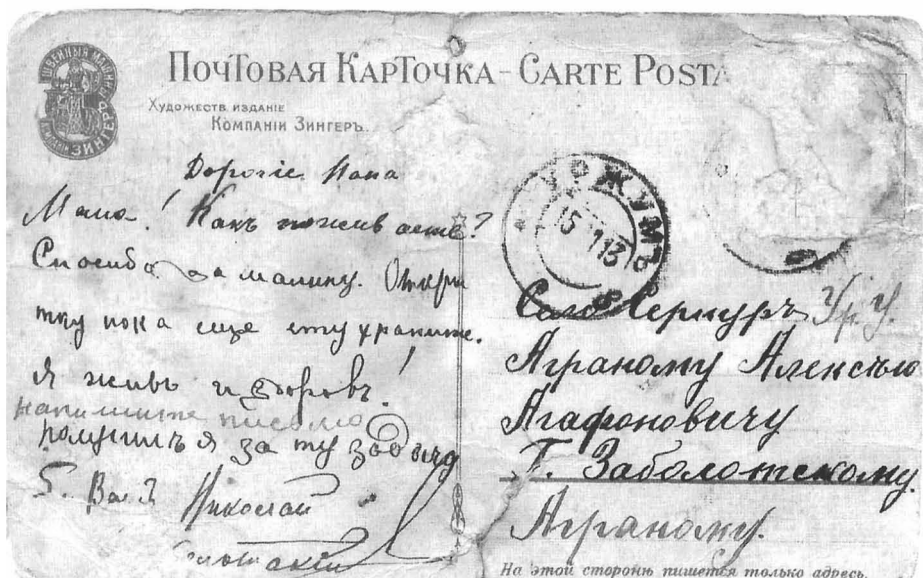 ПОЧТОВАЯ КАРТОЧКА - CARTE POSTA
ХУДОЖЕСТВ. ИЗДАНІЕ
КОМПАНІИ ЗИНГЕРЪ.
ЗИНГЕРЪ
Дорогіе Папа
Мама! Какъ поживаете?
Спасибо за малину. Откры
тку пока еще эту храните.
Я живъ и здоровъ!
напишите писмо
получилъ я за ту
5. Ва 3 Николай
УРЖУМЪ
15 13
Село Сернуръ Ур. У.
Аграному Алексѣю
Агафоновичу
Г. Заболотскому.
Аграному.
На этой сторонѣ пишется только адресъ.